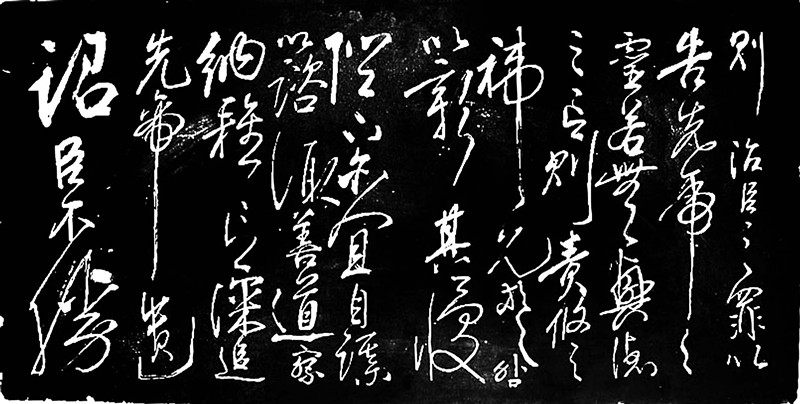 則治臣之罪以
告先帝之
靈若無興德
之言則責攸之
禕允等咎
以彰其慢
陛下亦宜自課
以諮諏善道察
納雅言深追
先帝遺
詔臣不勝